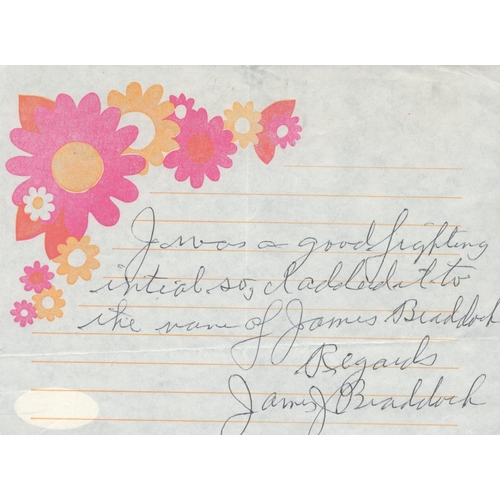 J. was a good fighting
intial so, I added it to
the name of James Braddock
Regards
James J Braddock